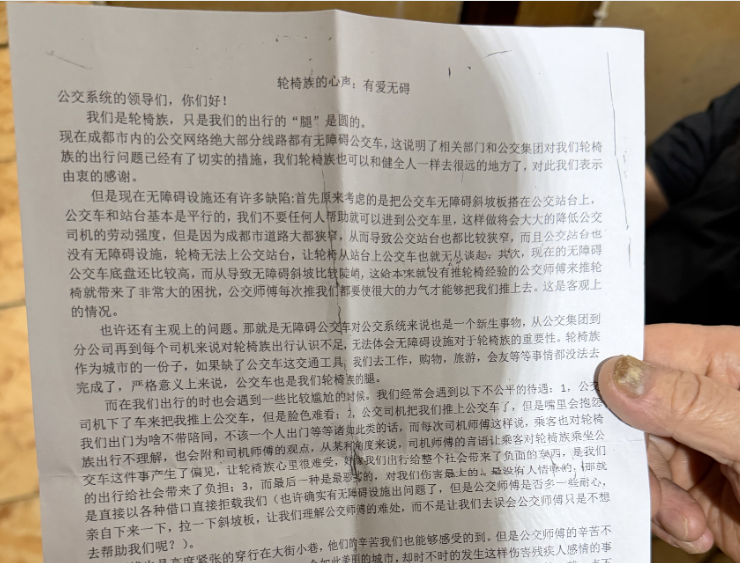 轮椅族的心声：有爱无碍
公交系统的领导们，你们好！
我们是轮椅族，只是我们的出行的“腿”是圆的。
现在成都市内的公交网络绝大部分线路都有无障碍公交车，这说明了相关部门和公交集团对我们轮椅
族的出行问题已经有了切实的措施，我们轮椅族也可以和健全人一样去很远的地方了，对此我们表示
由衷的感谢。
但是现在无障碍设施还有许多缺陷：首先原来考虑的是把公交车无障碍斜坡板搭在公交站台上，
公交车和站台基本是平行的，我们不要任何人帮助就可以进到公交车里，这样做将会大大的降低公交
司机的劳动强度，但是因为成都市道路大都狭窄，从而导致公交站台也都比较狭窄，而且公交站台也
没有无障碍设施，轮椅无法上公交站台，让轮椅从站台上公交车也就无从谈起。其次，现在的无障碍
公交车底盘还比较高，而从导致无障碍斜坡比较陡峭，这给本来就没有推轮椅经验的公交师傅来推轮
椅就带来了非常大的困扰，公交师傅每次推我们都要使很大的力气才能够把我们推上去。这是客观上
的情况。
也许还有主观上的问题。那就是无障碍公交车对公交系统来说也是一个新生事物，从公交集团到
分公司再到每个司机来说对轮椅族出行认识不足，无法体会无障碍设施对于轮椅族的重要性。轮椅族
作为城市的一份子，如果缺了公交车这交通工具，我们去工作，购物，旅游，会友等等事情都没法去
完成了，严格意义上来说，公交车也是我们轮椅族的腿。
而在我们出行的时也会遇到一些比较尴尬的时候。我们经常会遇到以下不公平的待遇：1，公交
司机下了车来把我推上公交车，但是脸色难看；2，公交司机把我们推上公交车了，但是嘴里会抱怨
我们出门为啥不带陪同，不该一个人出门等等诸如此类的话，而每次司机师傅这样说，乘客也对轮椅
族出行不理解，也会附和司机师傅的观点，从某种角度来说，司机师傅的言语让乘客对轮椅族乘坐公
交车这件事产生了偏见，让轮椅族心里很难受，好像我们出行给整个社会带来了负面的东西，是我们
的出行给社会带来了负担；3，而最后一种是最恶劣的，对我们伤害最上的，最没有人情味的，那就
是直接以各种借口直接拒载我们（也许确实有无障碍设施出问题了，但是公交师傅是否多一些耐心，
亲自下来一下，拉一下斜坡板，让我们理解公交师傅的难处，而不是让我们去误会公交师傅只是不想
去帮助我们呢？）。
也是高度紧张的穿行在大街小巷，他们的辛苦我们也能够感受的到，但是公交师傅的辛苦不
如此美丽的城市，却时不时的发生这样伤害残疾人感情的事